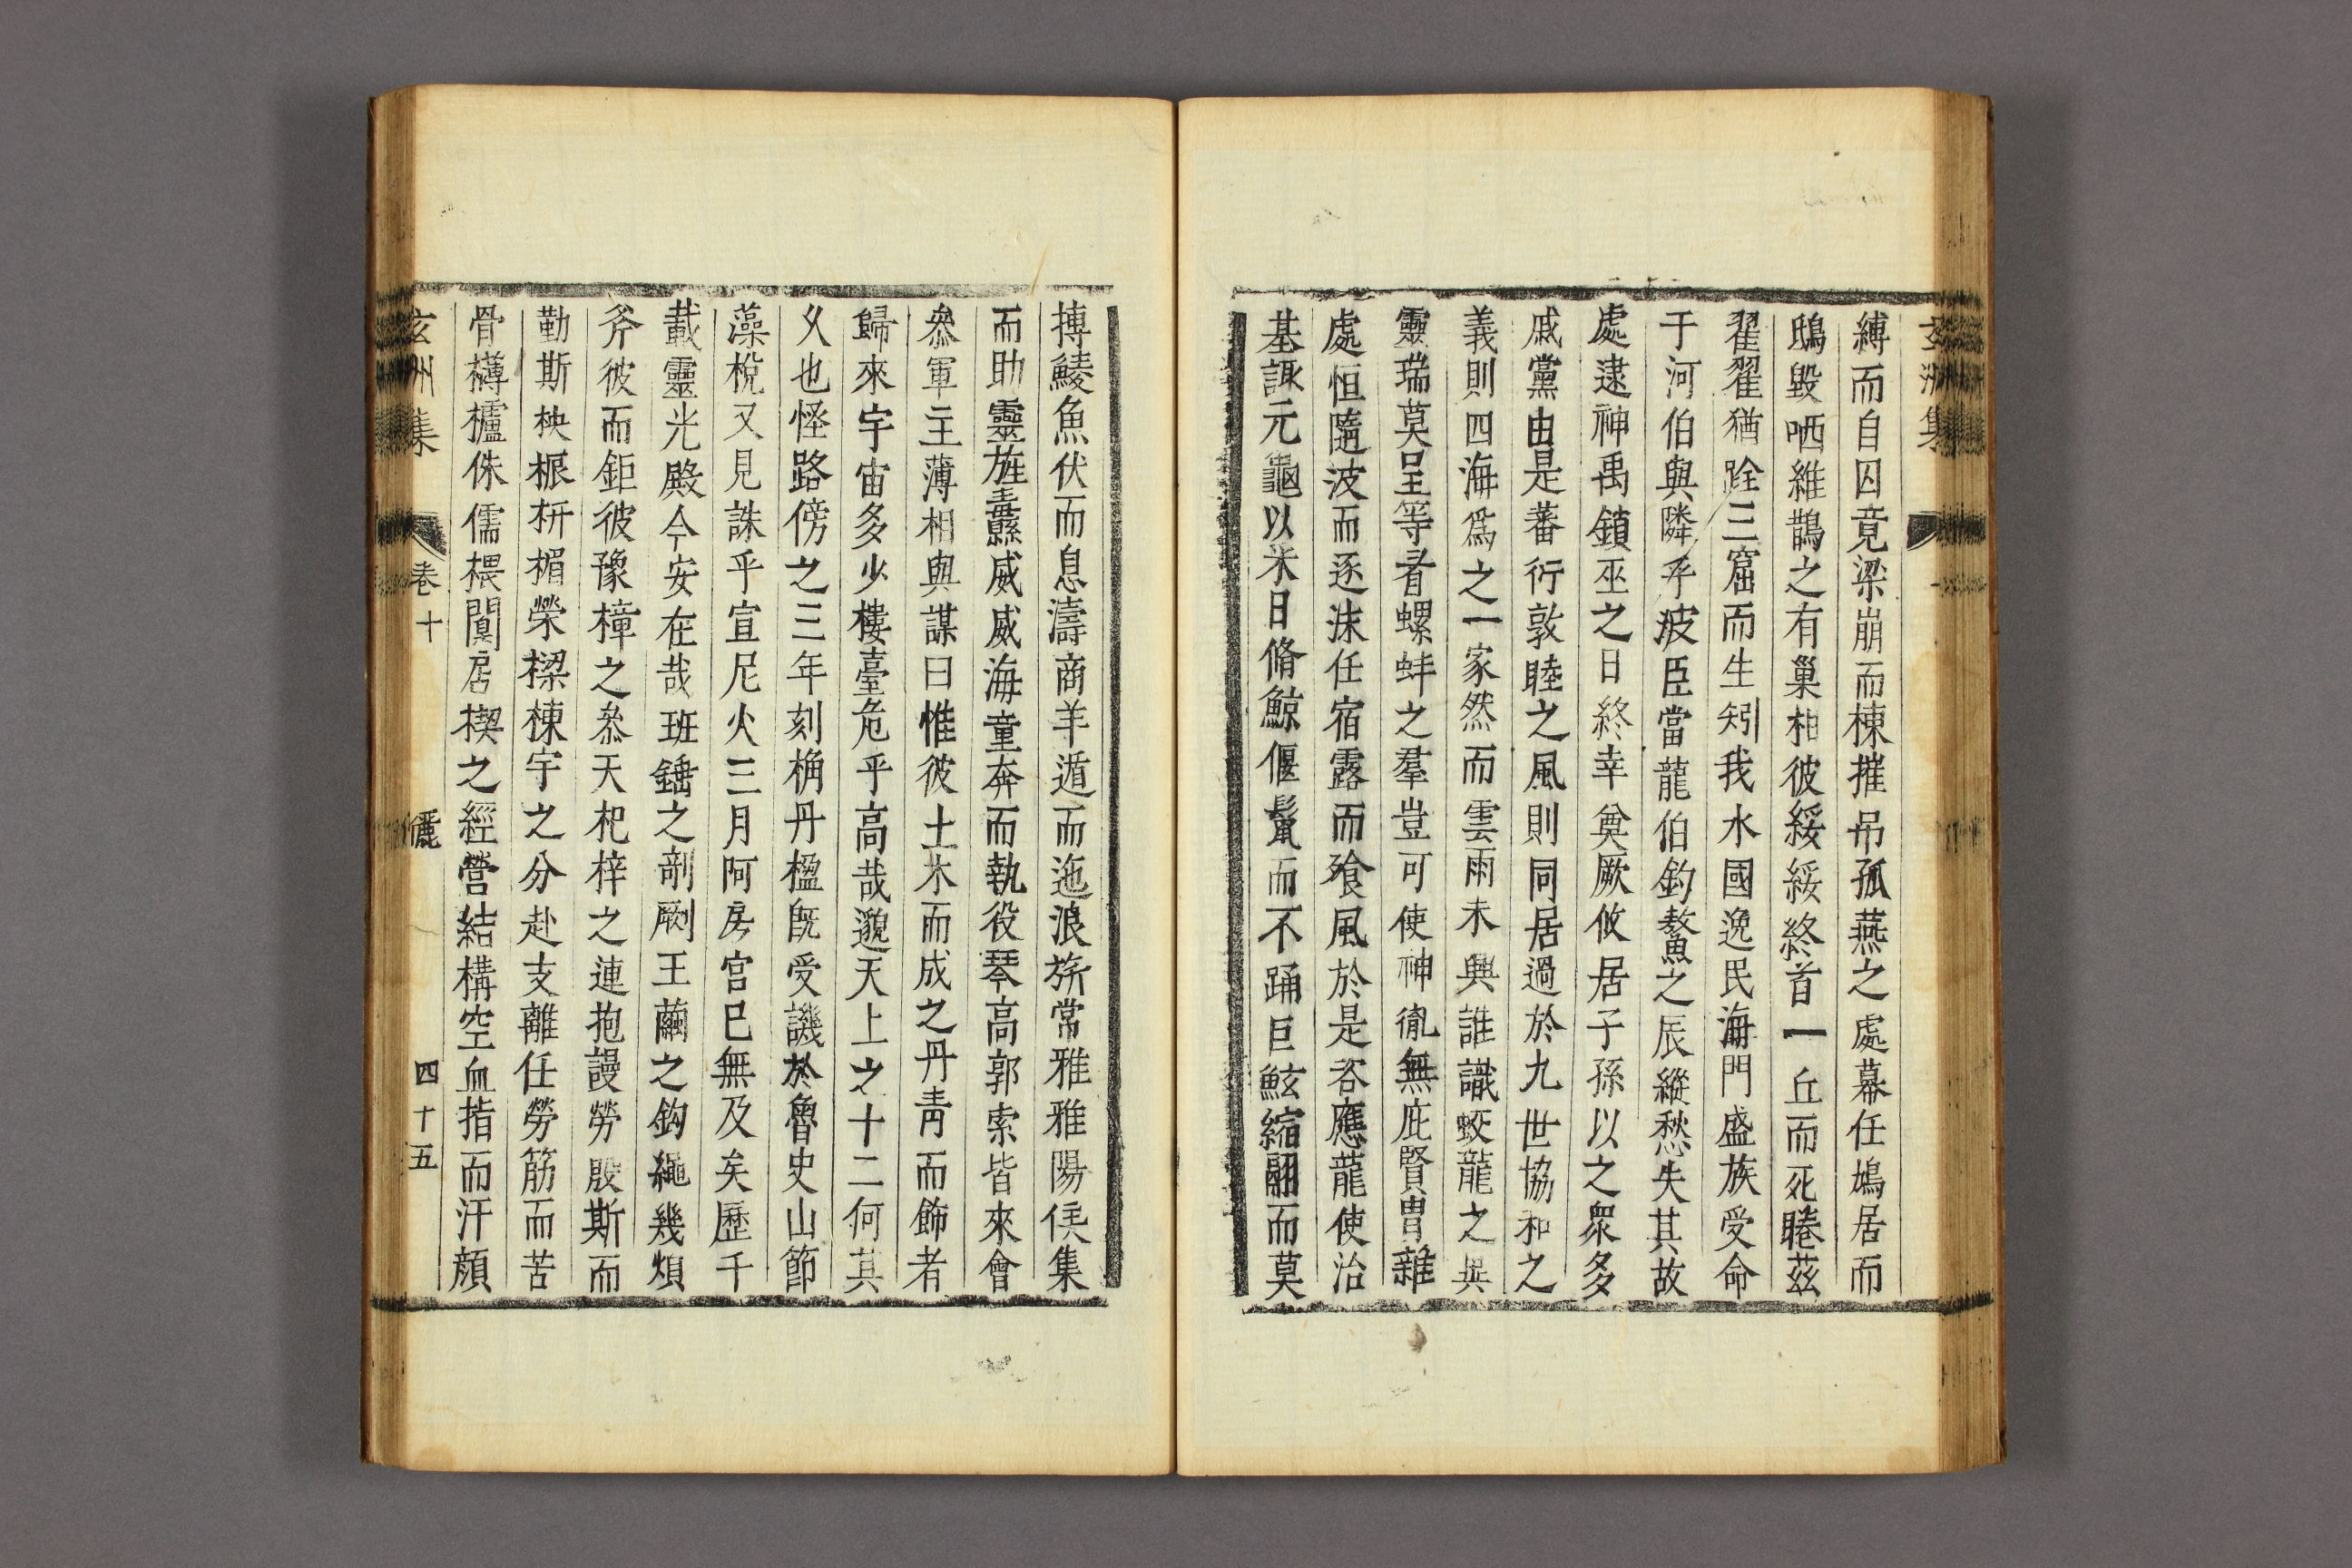 玄洲集
縛而自囚竟梁崩而棟摧吊孤燕之處幕任鳩居而
鴟毀哂維鵲之有巢相彼綏綏終首一丘而死睠茲
翟翟猶跧三窟而生矧我水國逸民海門盛族受命
于河伯與隣乎波臣當龍伯釣鰲之辰縱愁失其故
處逮神禹鎖巫之日終幸奠厥攸居子孫以之衆多
戚黨由是蕃衍敦睦之風則同居過於九世協和之
義則四海爲之一家然而雲雨未興誰識蛟龍之異
靈瑞莫呈等看螺蚌之羣豈可使神胤無庇賢胄雜
處恒隨波而逐沫任宿露而飱風於是咨應龍使治
基諏元龜以米日脩鯨偃鬣而不踊巨鮌縮翮而莫
搏鯪魚伏而息濤商羊遁而迤浪旂常雅雅陽侯集
而助靈旌纛威威海童奔而執役琴高郭索皆來會
叅軍主薄相與謀曰惟彼土木而成之丹靑而飾者
歸來宇宙多少樓臺危乎高哉邈天上之十二何其
久也怪路傍之三年刻桷丹楹旣受譏於魯史山節
藻梲又見誅乎宣尼火三月阿房宮已無及矣歷千
載靈光殿今安在哉班錘之剞劂王繭之鈎繩幾煩
斧彼而鉅彼豫樟之叅天杞梓之連抱謾勞殷斯而
勤斯柍桭枅楣榮樑棟宇之分赴支離任勞筋而苦
骨欂櫨侏儒椳闑扂楔之經營結構空血指而汗顔
玄洲集 卷十 儷 四十五